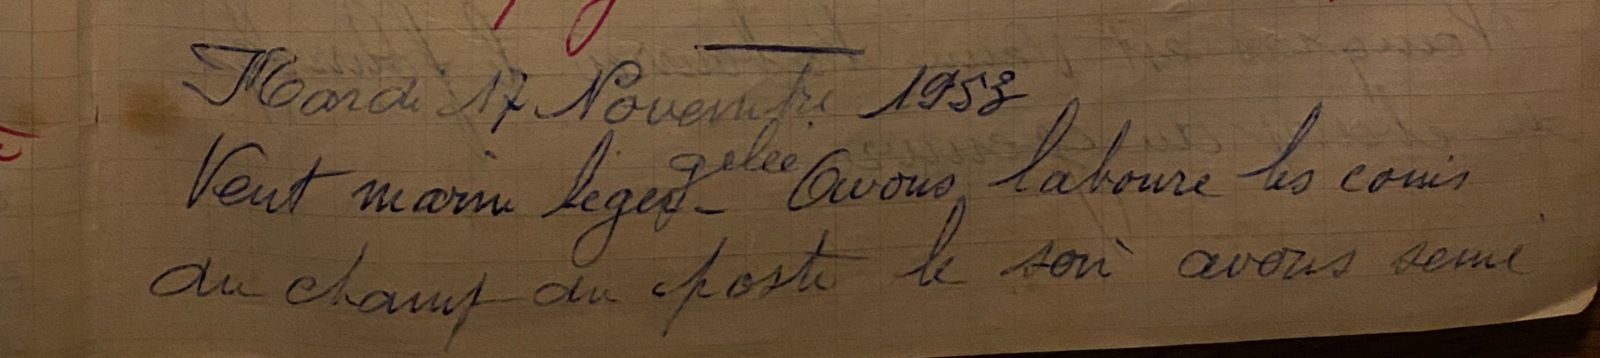 Mardi 17 Novembre 1953
Vent marin léger gelée Avons labouré les coins
du champ du poste le soir avons semé